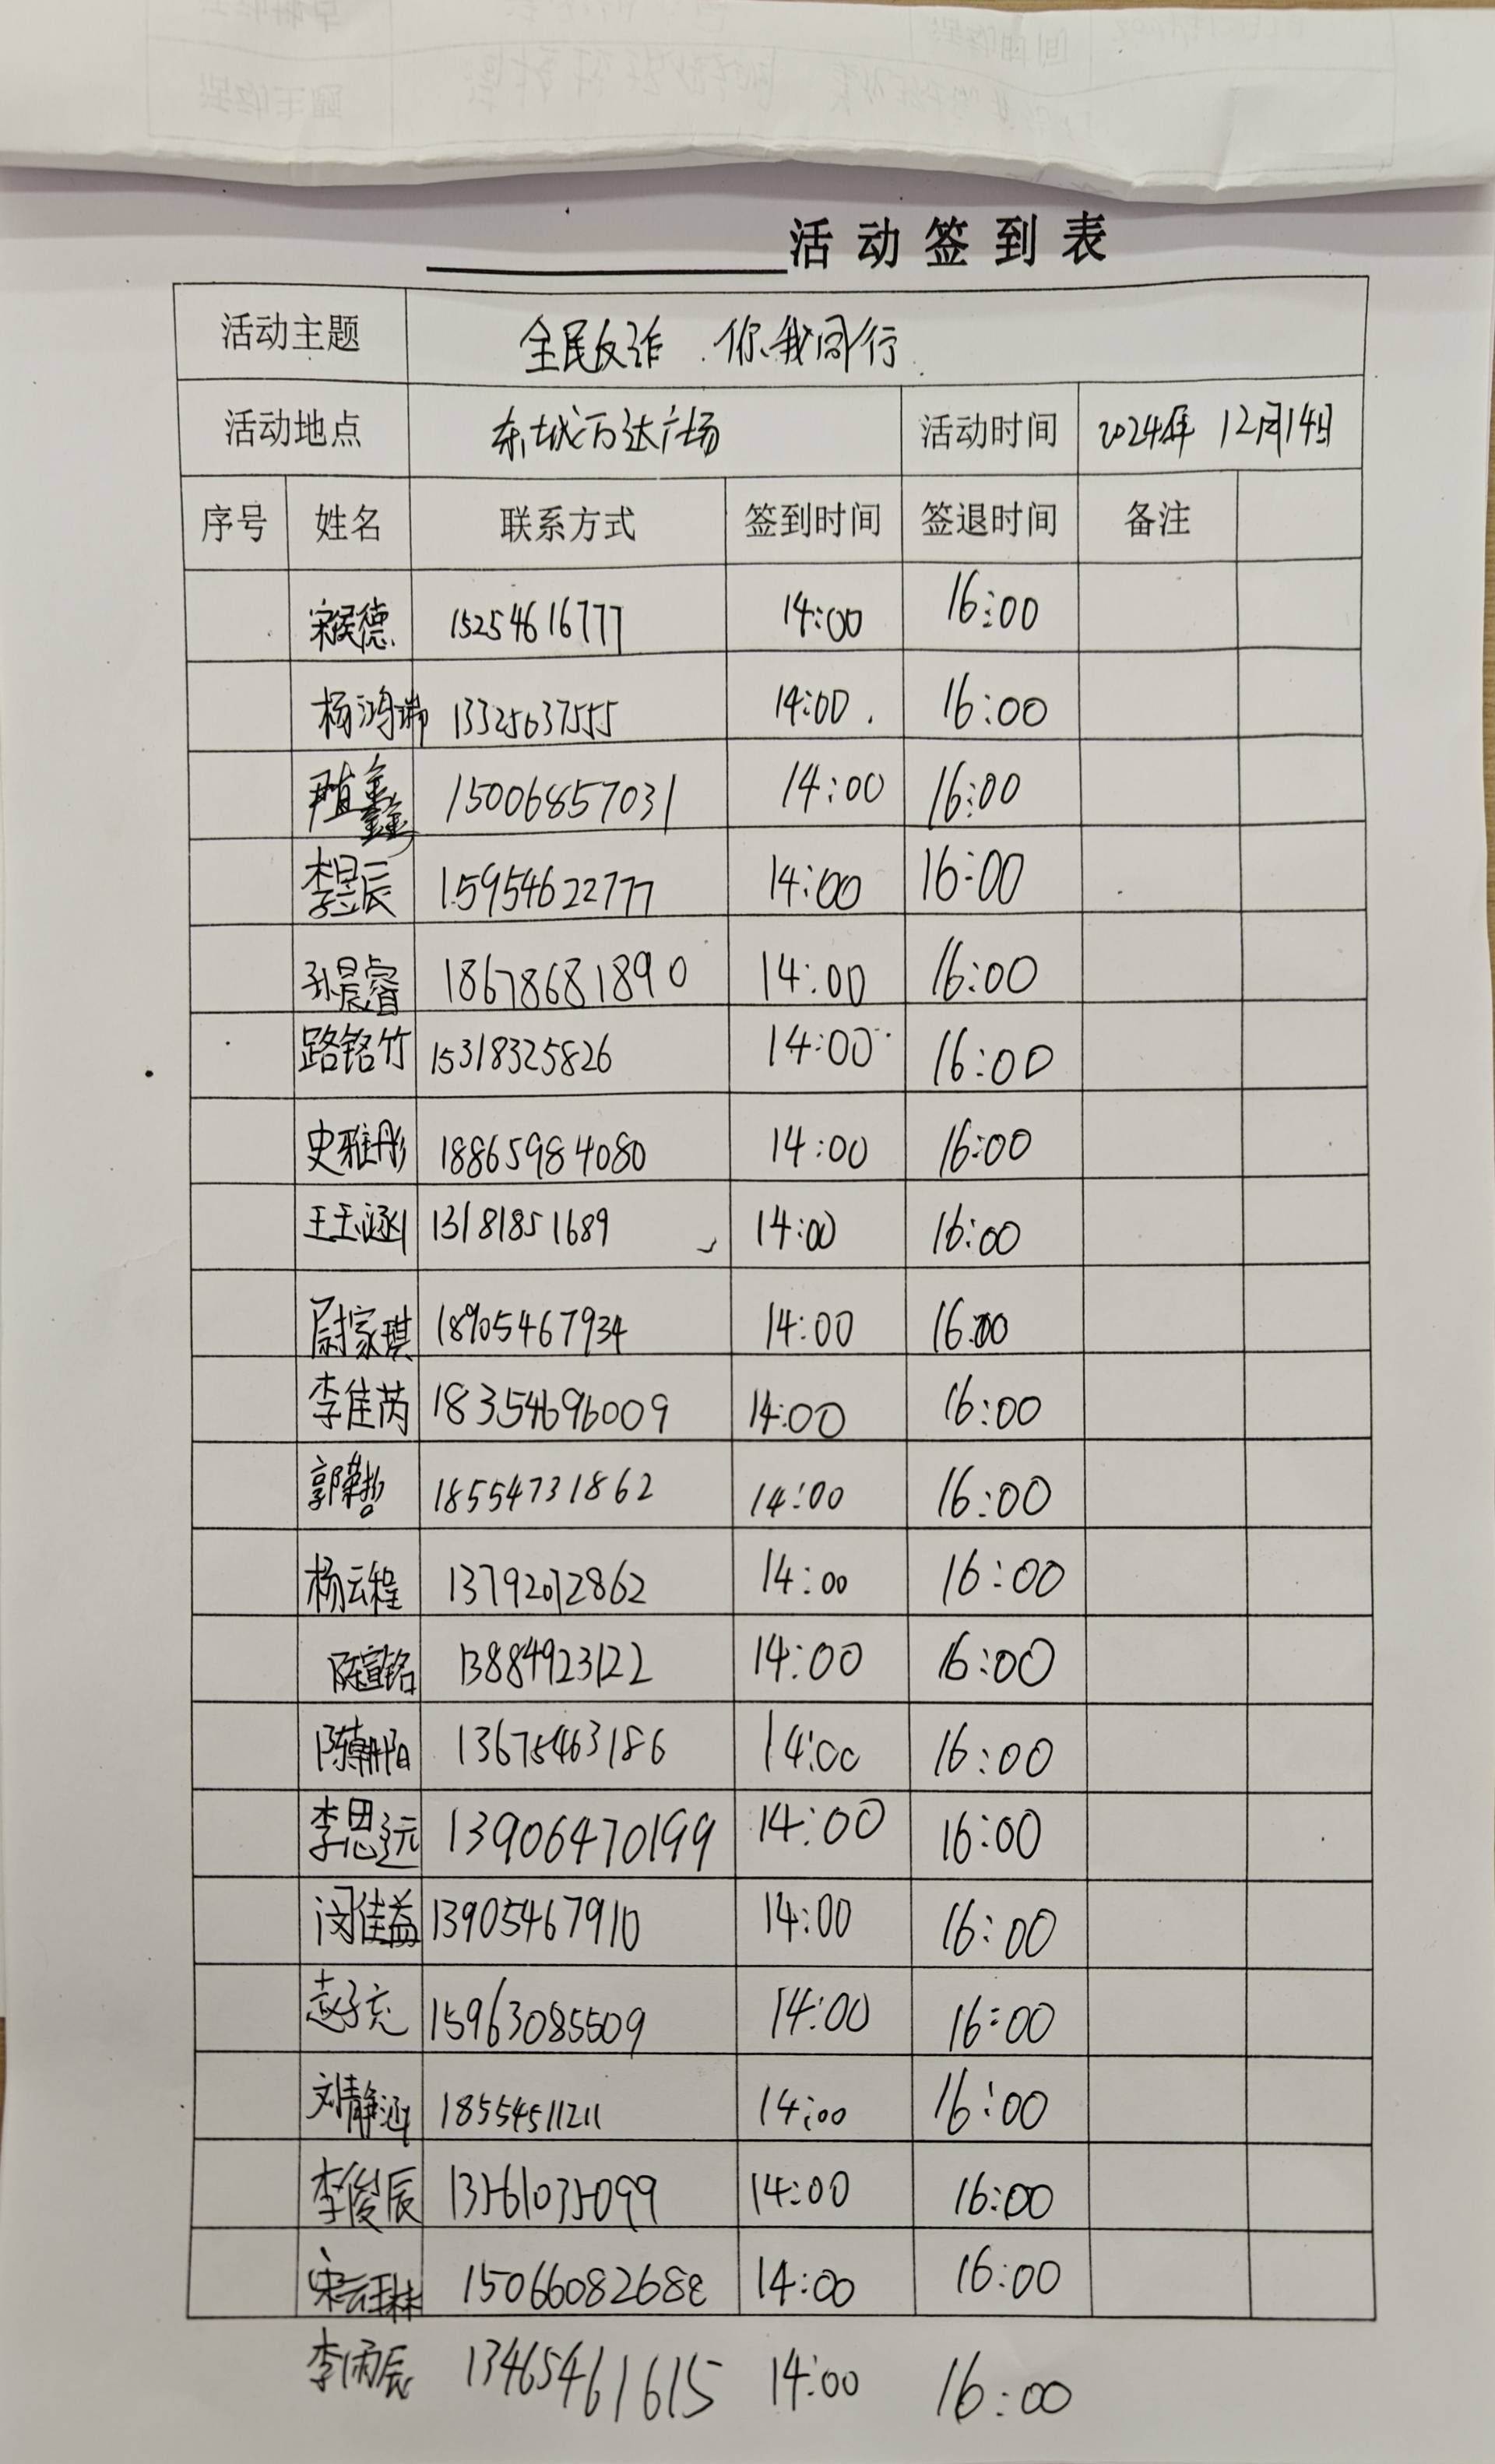 活动签到表
活动主题 全民反诈 你我同行
活动地点 东城万达广场 活动时间 2024年 12月14日
序号 姓名 联系方式 签到时间 签退时间 备注
15254616777 14:00 16:00
杨鸿瑞 13325637555 14:00 16:00
鑫 15006857031 14:00 16:00
李昱辰 15954622777 14:00 16:00
孙晨睿 18678681890 14:00 16:00
路铭竹 15318325826 14:00 16:00
史雅彤 18865984080 14:00 16:00
王玉涵 13181851689 14:00 16:00
尉家琪 18905467934 14:00 16:00
李佳芮 18354696009 14:00 16:00
郭荣哲 18554731862 14:00 16:00
杨云程 13792072862 14:00 16:00
陈宣铭 13884923122 14:00 16:00
陈朝阳 13675463186 14:00 16:00
李思远 13906470199 14:00 16:00
闵佳益 13905467910 14:00 16:00
赵子亮 15963085509 14:00 16:00
刘静涵 18554511211 14:00 16:00
李俊辰 13561035099 14:00 16:00
宋云琳 15066082688 14:00 16:00
李雨辰 13465461615 14:00 16:00